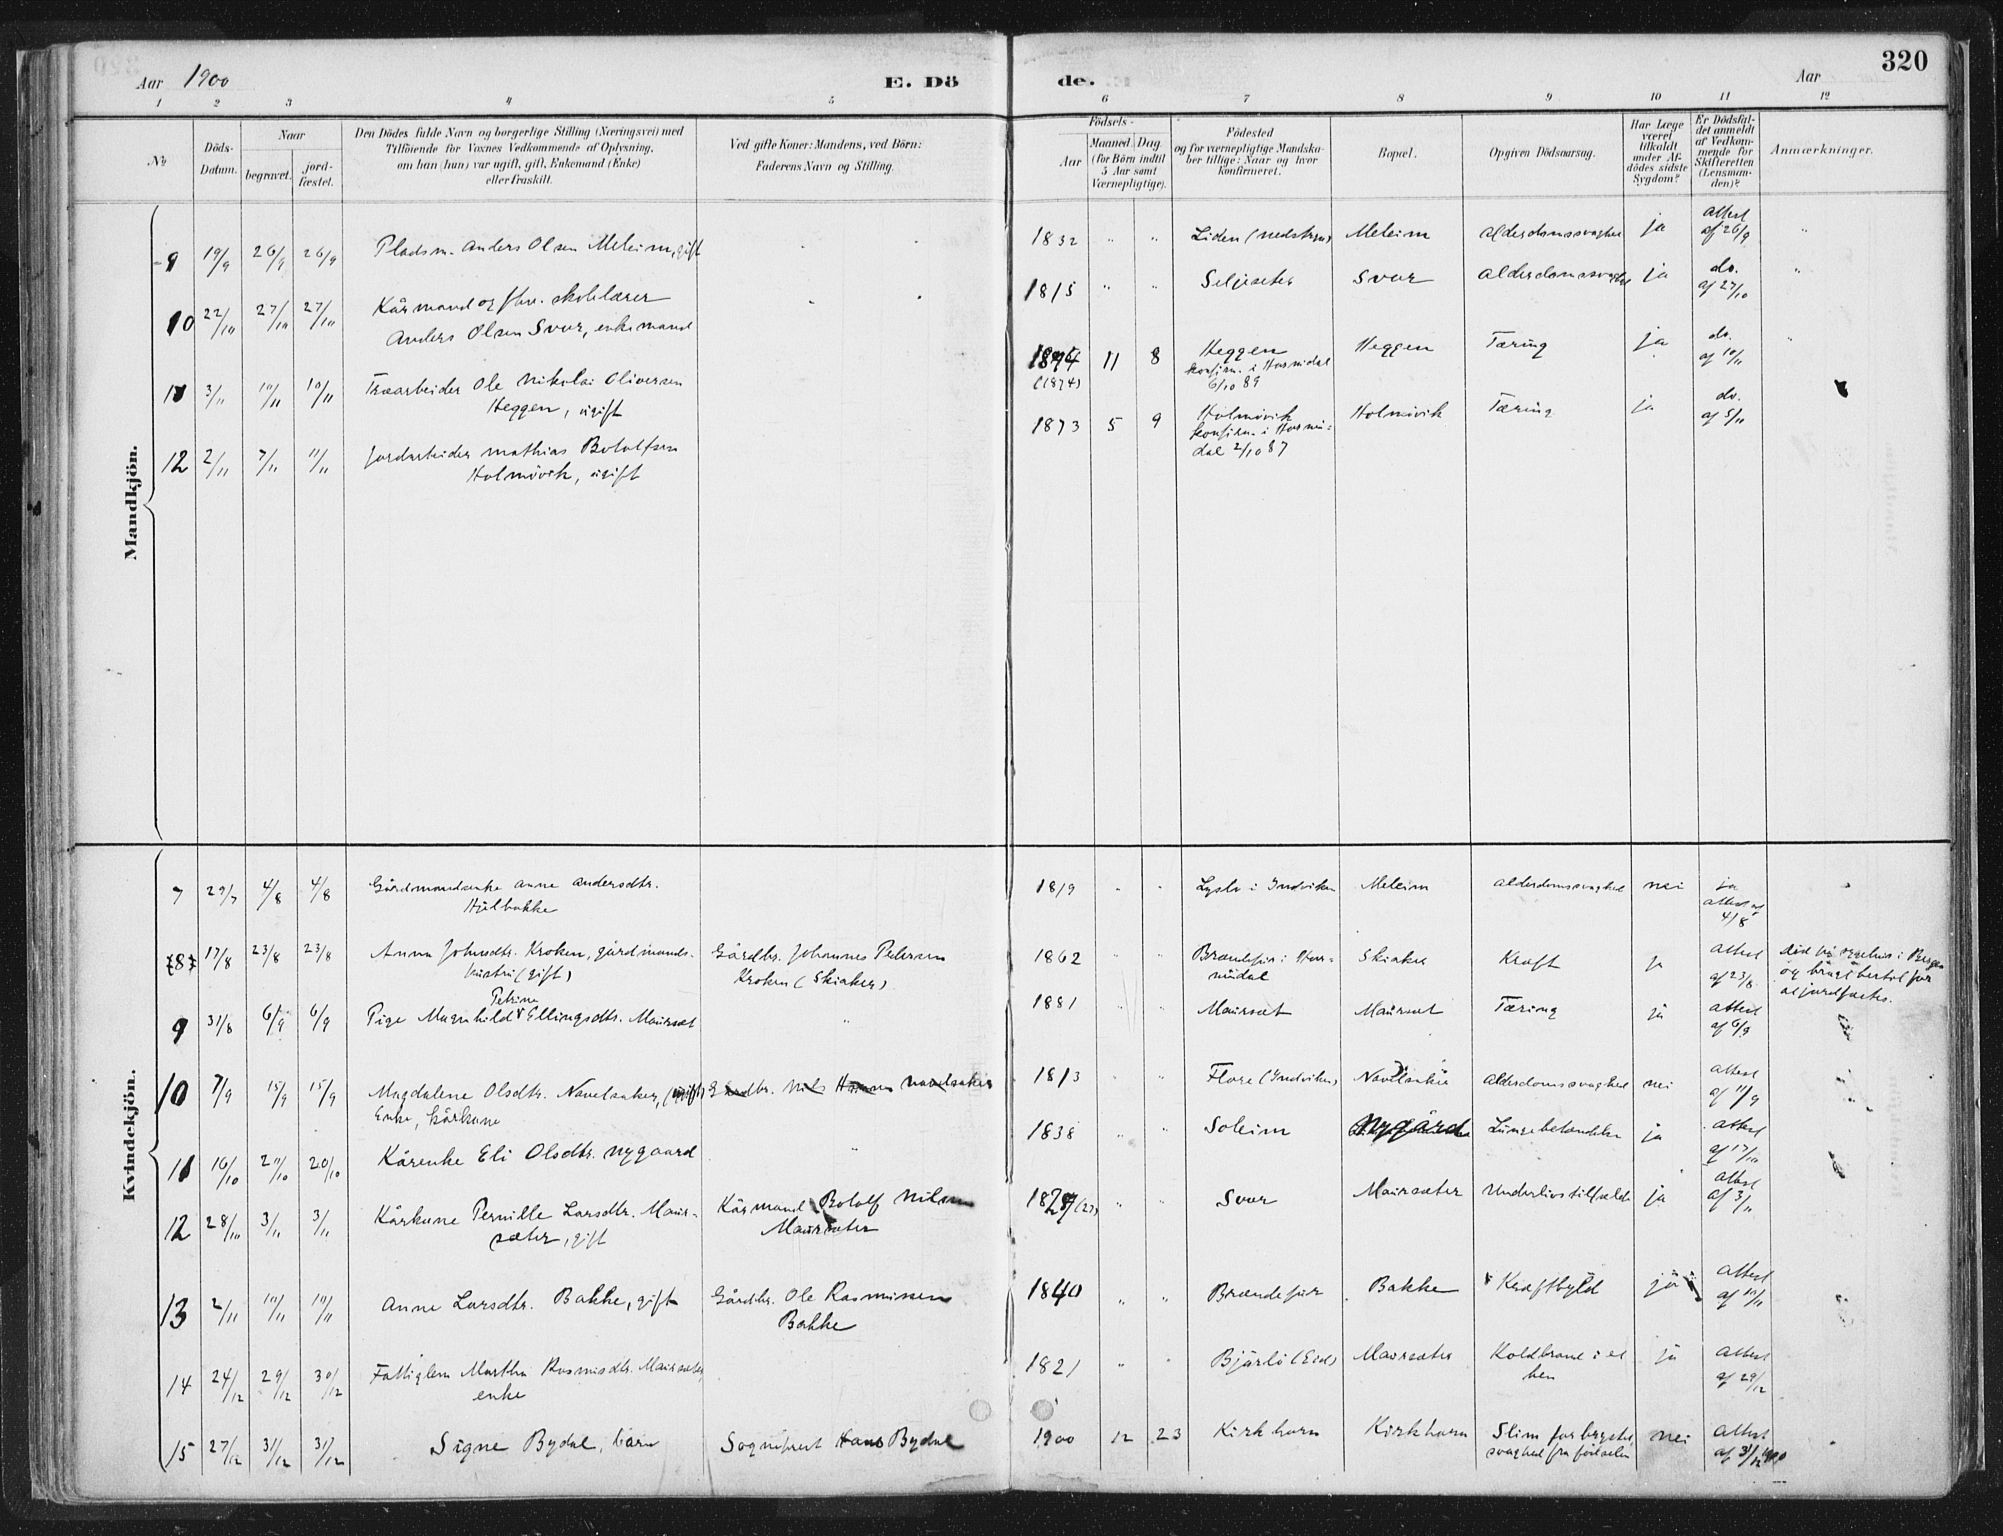 Aar 1900
E. Dö
de.
Aar
320
1 2 3 4 5 6 7 8 9 10 11 12
No
Döds-Datum.
Naar
begravet.
jord-fæstet.
Den Dödes fulde Navn og borgerlige Stilling (Næringsvei) med
Tilföiende for Voxnes Vedkommende af Oplysning,
om han (hun) var ugift, gift, Enkemand (Enke)
eller fraskilt.
Ved gifte Koner: Mandens, ved Börn:
Faderens Navn og Stilling.
Födsels-
Aar
Maaned. Dag
(for Börn indtil
5 Aar samt
Værnepligtige).
Födested
og for værnepligtige Mandska-
ber tillige: Naar og hvor
konfirmeret.
Bopæl.
Opgiven Dödsaarsag.
Har Læge
været
tilkaldt
under Af-
dödes sidste
Sygdom?
Er Dödsfal-
det anmeldt
af Vedkom-
mende for
Skifteretten
(Lensman-
den)?
Anmærkninger.
Mandkjön.
9 19/9 26/9 26/9 Pladsm. Anders Olsen Meleim, gift 1832 " " Liden (Nedstryn) Meleim Alderdomssvaghed ja Attest af 26/9 "
10 22/10 27/10 27/10 Kårmand og fhv. skolelærer
Anders Olsen Svor, enkemand 1815 " " Seljeseter Svor Alderdomssvaghed ja do. af 27/10 "
11 3/11 10/11 10/11 Træarbeider Ole Nikolai Oliversen
Heggen, ugift 1874 (1874) 11 8 Heggen
konfirm. i Hornindal
6/10 89 Heggen Tæring ja do. af 10/11 "
12 2/11 7/11 11/11 Jordarbeider Mathias Botolfsen
Holmøvik, ugift 1873 5 9 Holmøvik
konfirm. i Hornin-
dal 2/10 87 Holmøvik Tæring ja do. af 5/11
Kvindekjön.
7 29/7 4/8 4/8 Gårdmandsenke Anne Andersdtr.
Hjelbakke 1819 " " i Indviken Meleim Alderdomssvaghed nei ja
attest af
4/8
8 17/8 23/8 23/8 Anna Johnsdtr. Kroken, gårdmands-
hustru (gift) Gårdbr. Johannes Petersen
Kroken (Skiaker) 1862 " " i Hor-
nindal Skiaker Kræft ja Attest
af 23/8 i Bergen
og
9 31/8 6/9 6/9 Pige Magnhild Petrine Ellingsdtr. Maurset " 1881 " " Maurset Maurset Tæring ja Attest
af 6/9
10 7/9 15/9 15/9 Magdalene Olsdtr. Navelsaker, (ugift)
Enke, Kårkone Gårdbr. Nils Navelsaker 1813 Flore (Indviken) Navelsaker Alderdomssvaghed nei Attest
af 11/9
11 16/10 20/10 20/10 Kårenke Eli Olsdtr. Nygaard " 1838 " " Soleim Nygård Lungebetændelse ja Attest
af 17/10
12 28/10 3/11 3/11 Kårkone Pernille Larsdtr. Maur-
sæter, gift Kårmand Botolf Nilsen
Maursæter 1827 (27) " " Svor Maursæter Underlivstilfælde ja Attest
af 3/11
13 2/11 10/11 10/11 Anne Larsdtr. Bakke, gift Gårdbr. Ole Rasmussen
Bakke 1840 " " Bakke Kræftbyld ja Attest
af 10/11
14 24/12 29/12 30/12 Fattiglem Martha Rasmusdtr. Maursæter
enke 1821 " " Bjørlo (Eid) Maursæter Koldbrand i et
ben ja Attest
af 29/12
15 27/12 31/12 31/12 Signe Bydal, barn Sogneprest Hans Bydal 1900 12 23 Kirkhorn Kirkhorn Slim for brystet,
svaghed fra fødselen nei Attest
af 31/12 1900